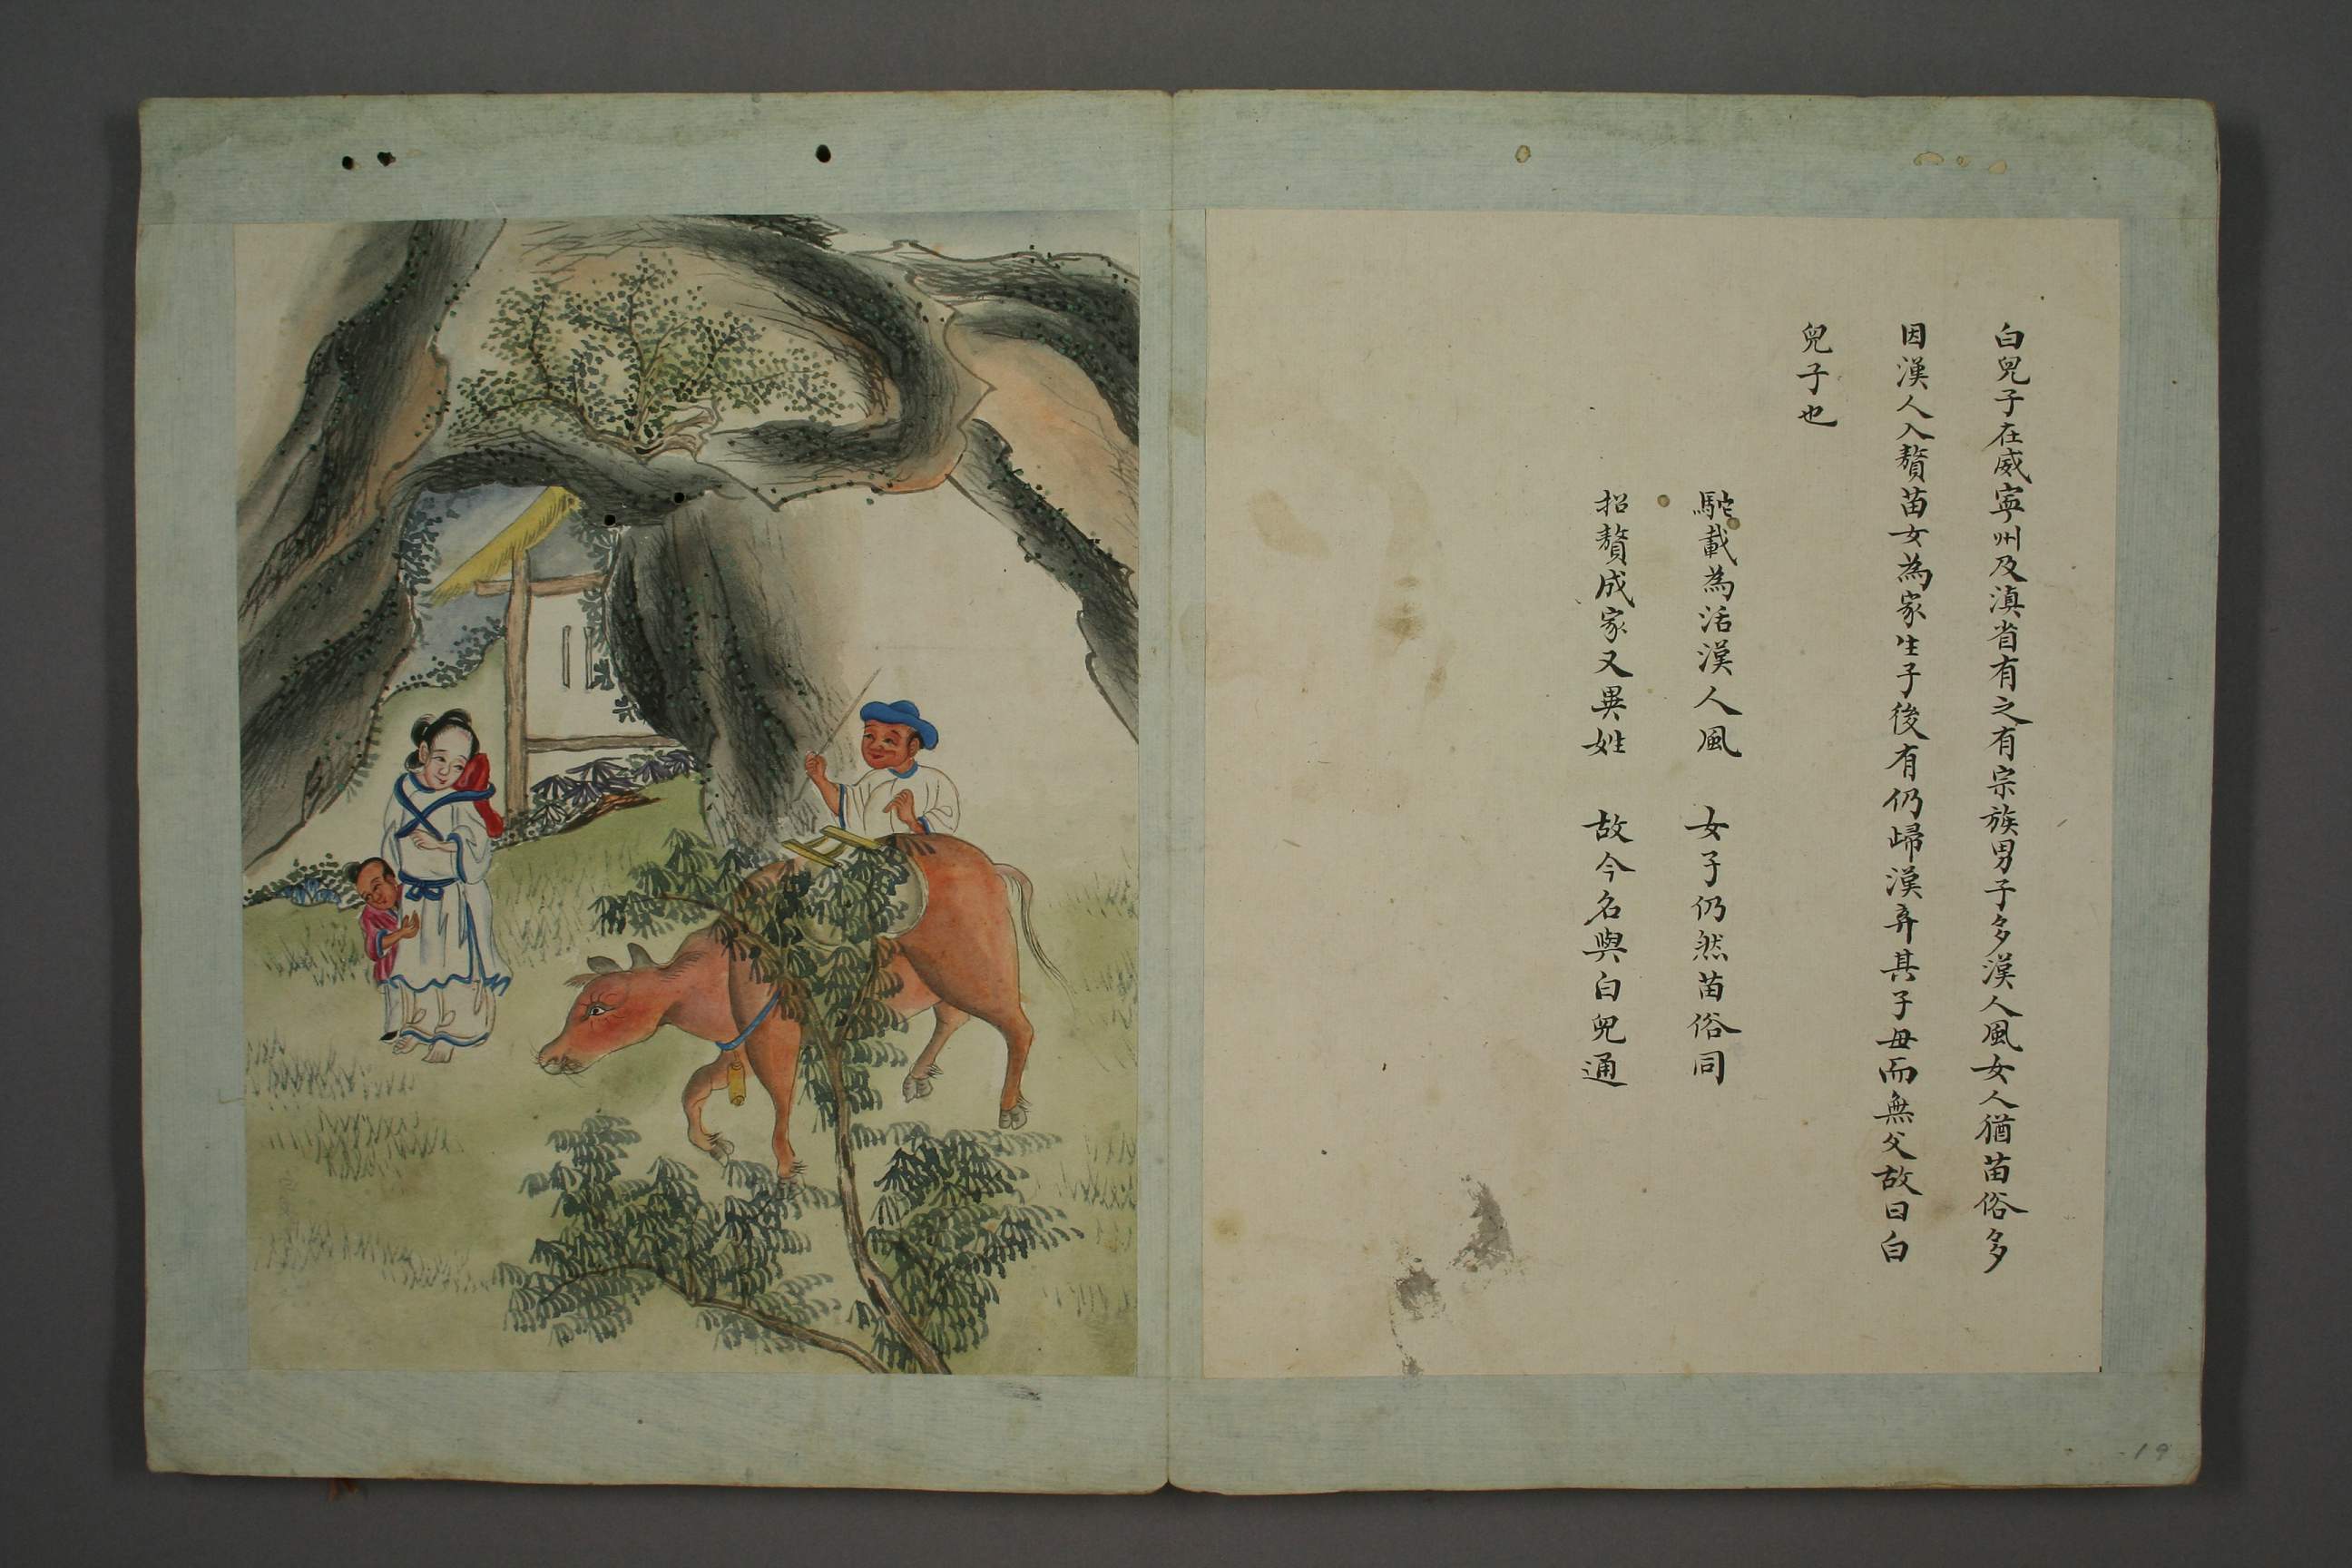 白兒子在威寧州及滇省有之有宗族男子多漢人風女人猶苗俗多
因漢人入贅苗女為家生子後有仍歸漢弃其子母而無父故曰白
兒子也
駝載為活漢人風　女子仍然苗俗同
招贅成家又異姓　故今名與白兒通
19